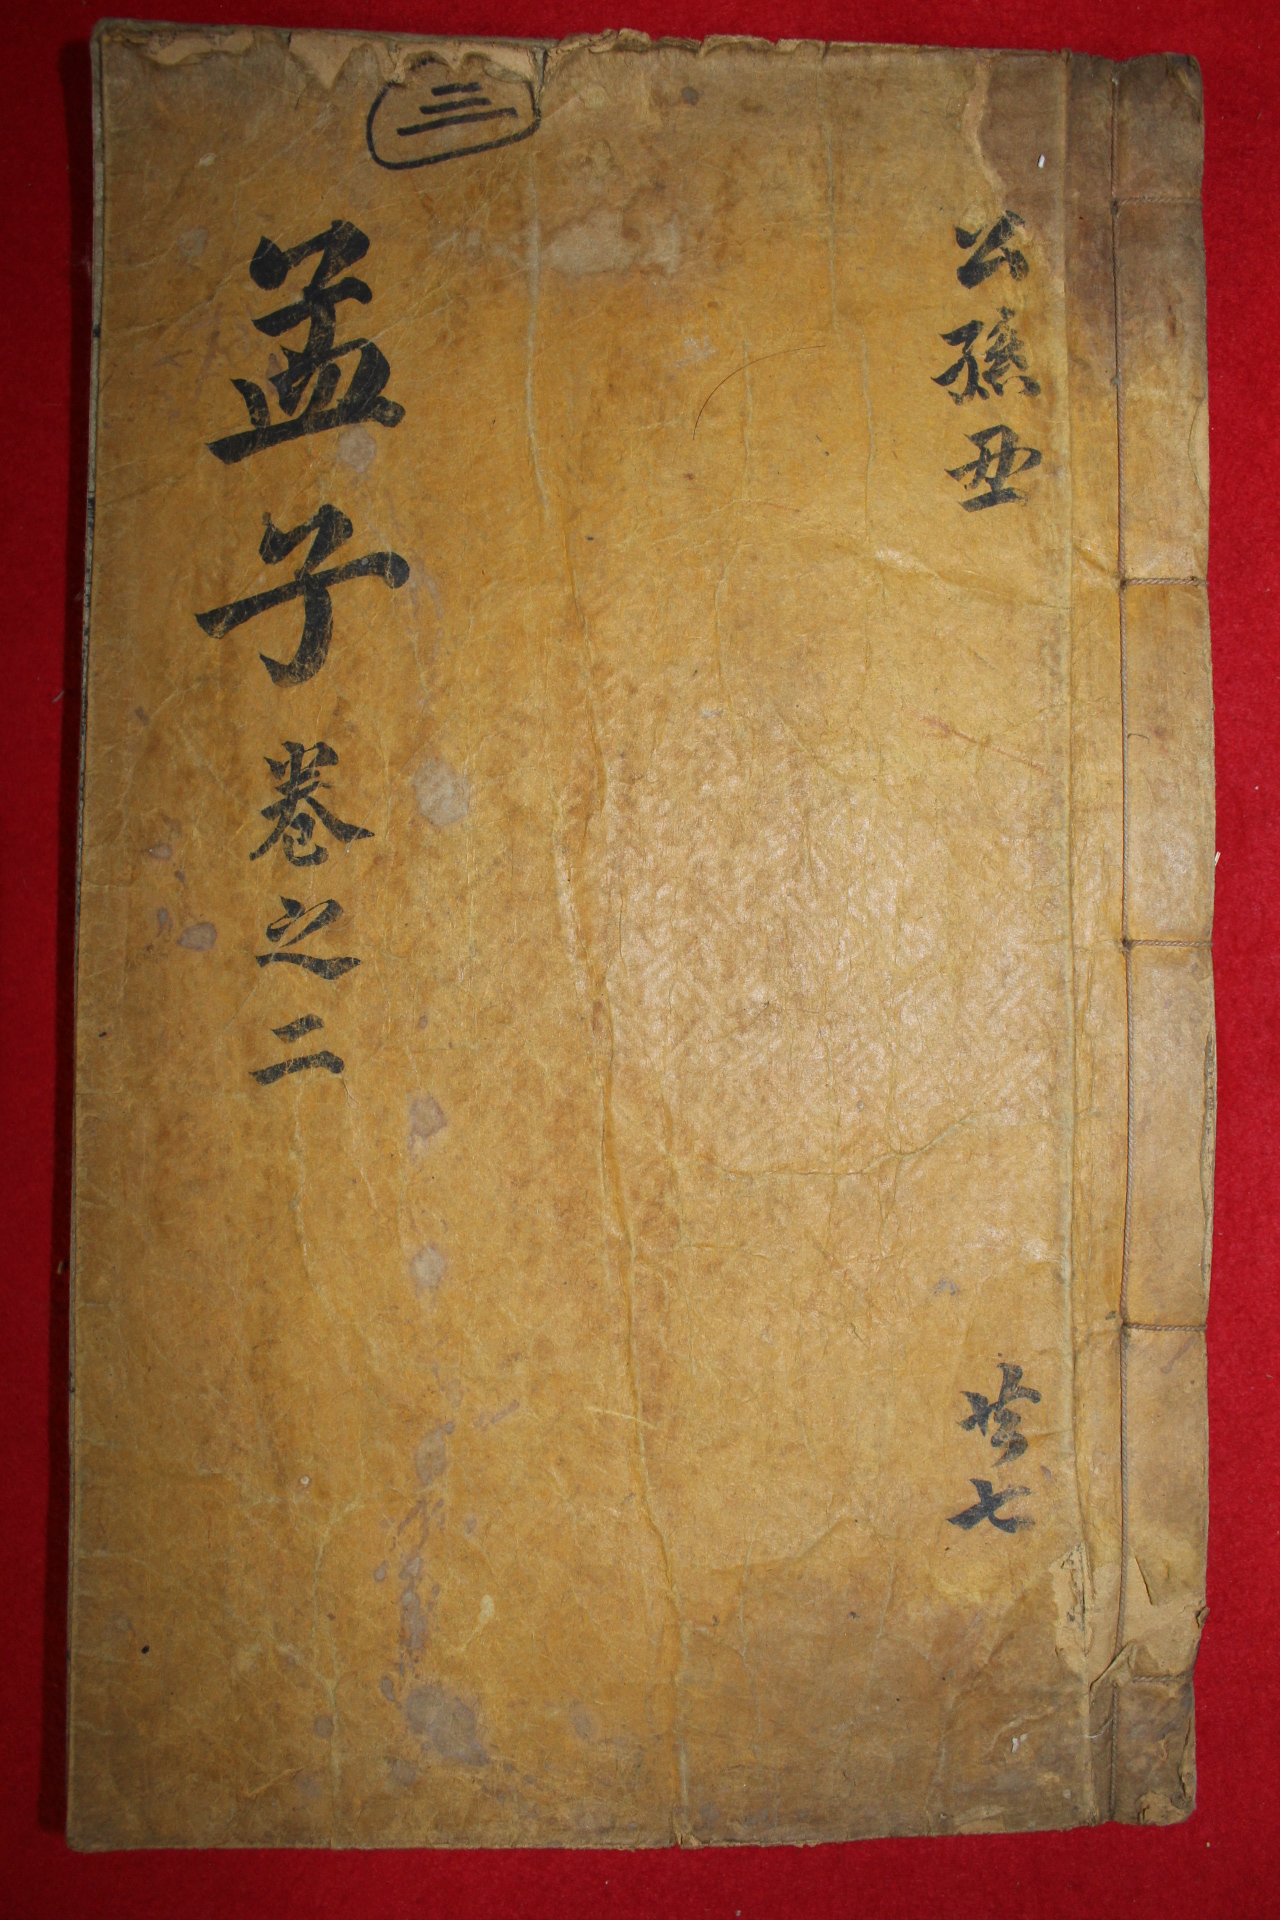 公孫丑
共七
三
孟子卷之二